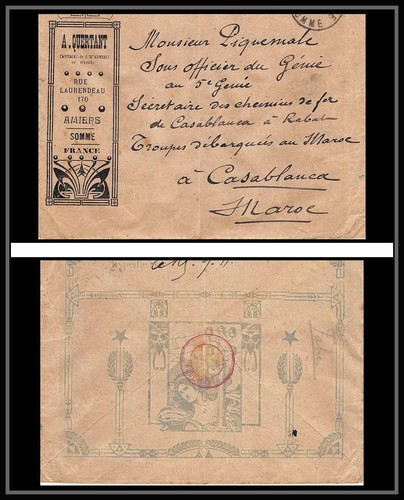 A. QUERTANT
RUE
LAURENDEAU
170
AMIENS
SOMME
FRANCE
SOMME
Monsieur Piquemale
Sous officier du Génie
au 5e Génie
Secrétaire des chemins de fer
de Casablanca à Rabat
Troupes débarquées au Maroc
à Casablanca
Maroc